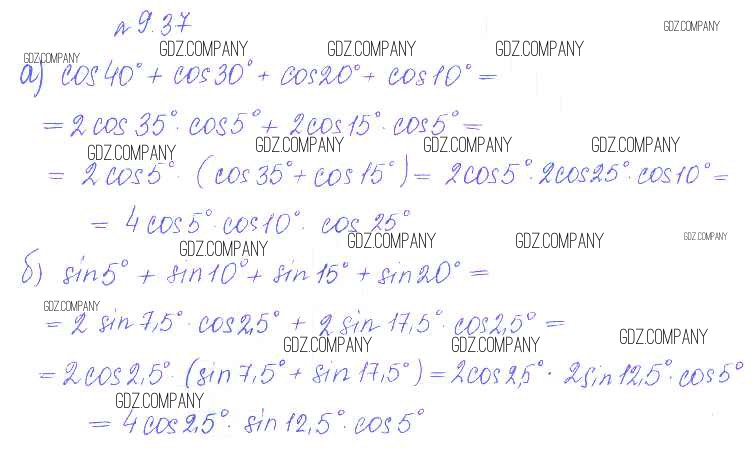 № 9.37
GDZ.COMPANY
GDZ.COMPANY GDZ.COMPANY GDZ.COMPANY GDZ.COMPANY
а) cos40° + cos30° + cos20° + cos10° =
= 2cos35° · cos5° + 2cos15° · cos5° =
GDZ.COMPANY GDZ.COMPANY GDZ.COMPANY GDZ.COMPANY
= 2cos5° · (cos35° + cos15°) = 2cos5° · 2cos25° · cos10° =
= 4cos5° · cos10° · cos25°
GDZ.COMPANY GDZ.COMPANY GDZ.COMPANY GDZ.COMPANY
б) sin5° + sin10° + sin15° + sin20° =
GDZ.COMPANY
= 2sin7,5° · cos2,5° + 2sin17,5° · cos2,5° =
GDZ.COMPANY GDZ.COMPANY GDZ.COMPANY
= 2cos2,5° · (sin7,5° + sin17,5°) = 2cos2,5° · 2sin12,5° · cos5°
GDZ.COMPANY
= 4cos2,5° · sin12,5° · cos5°